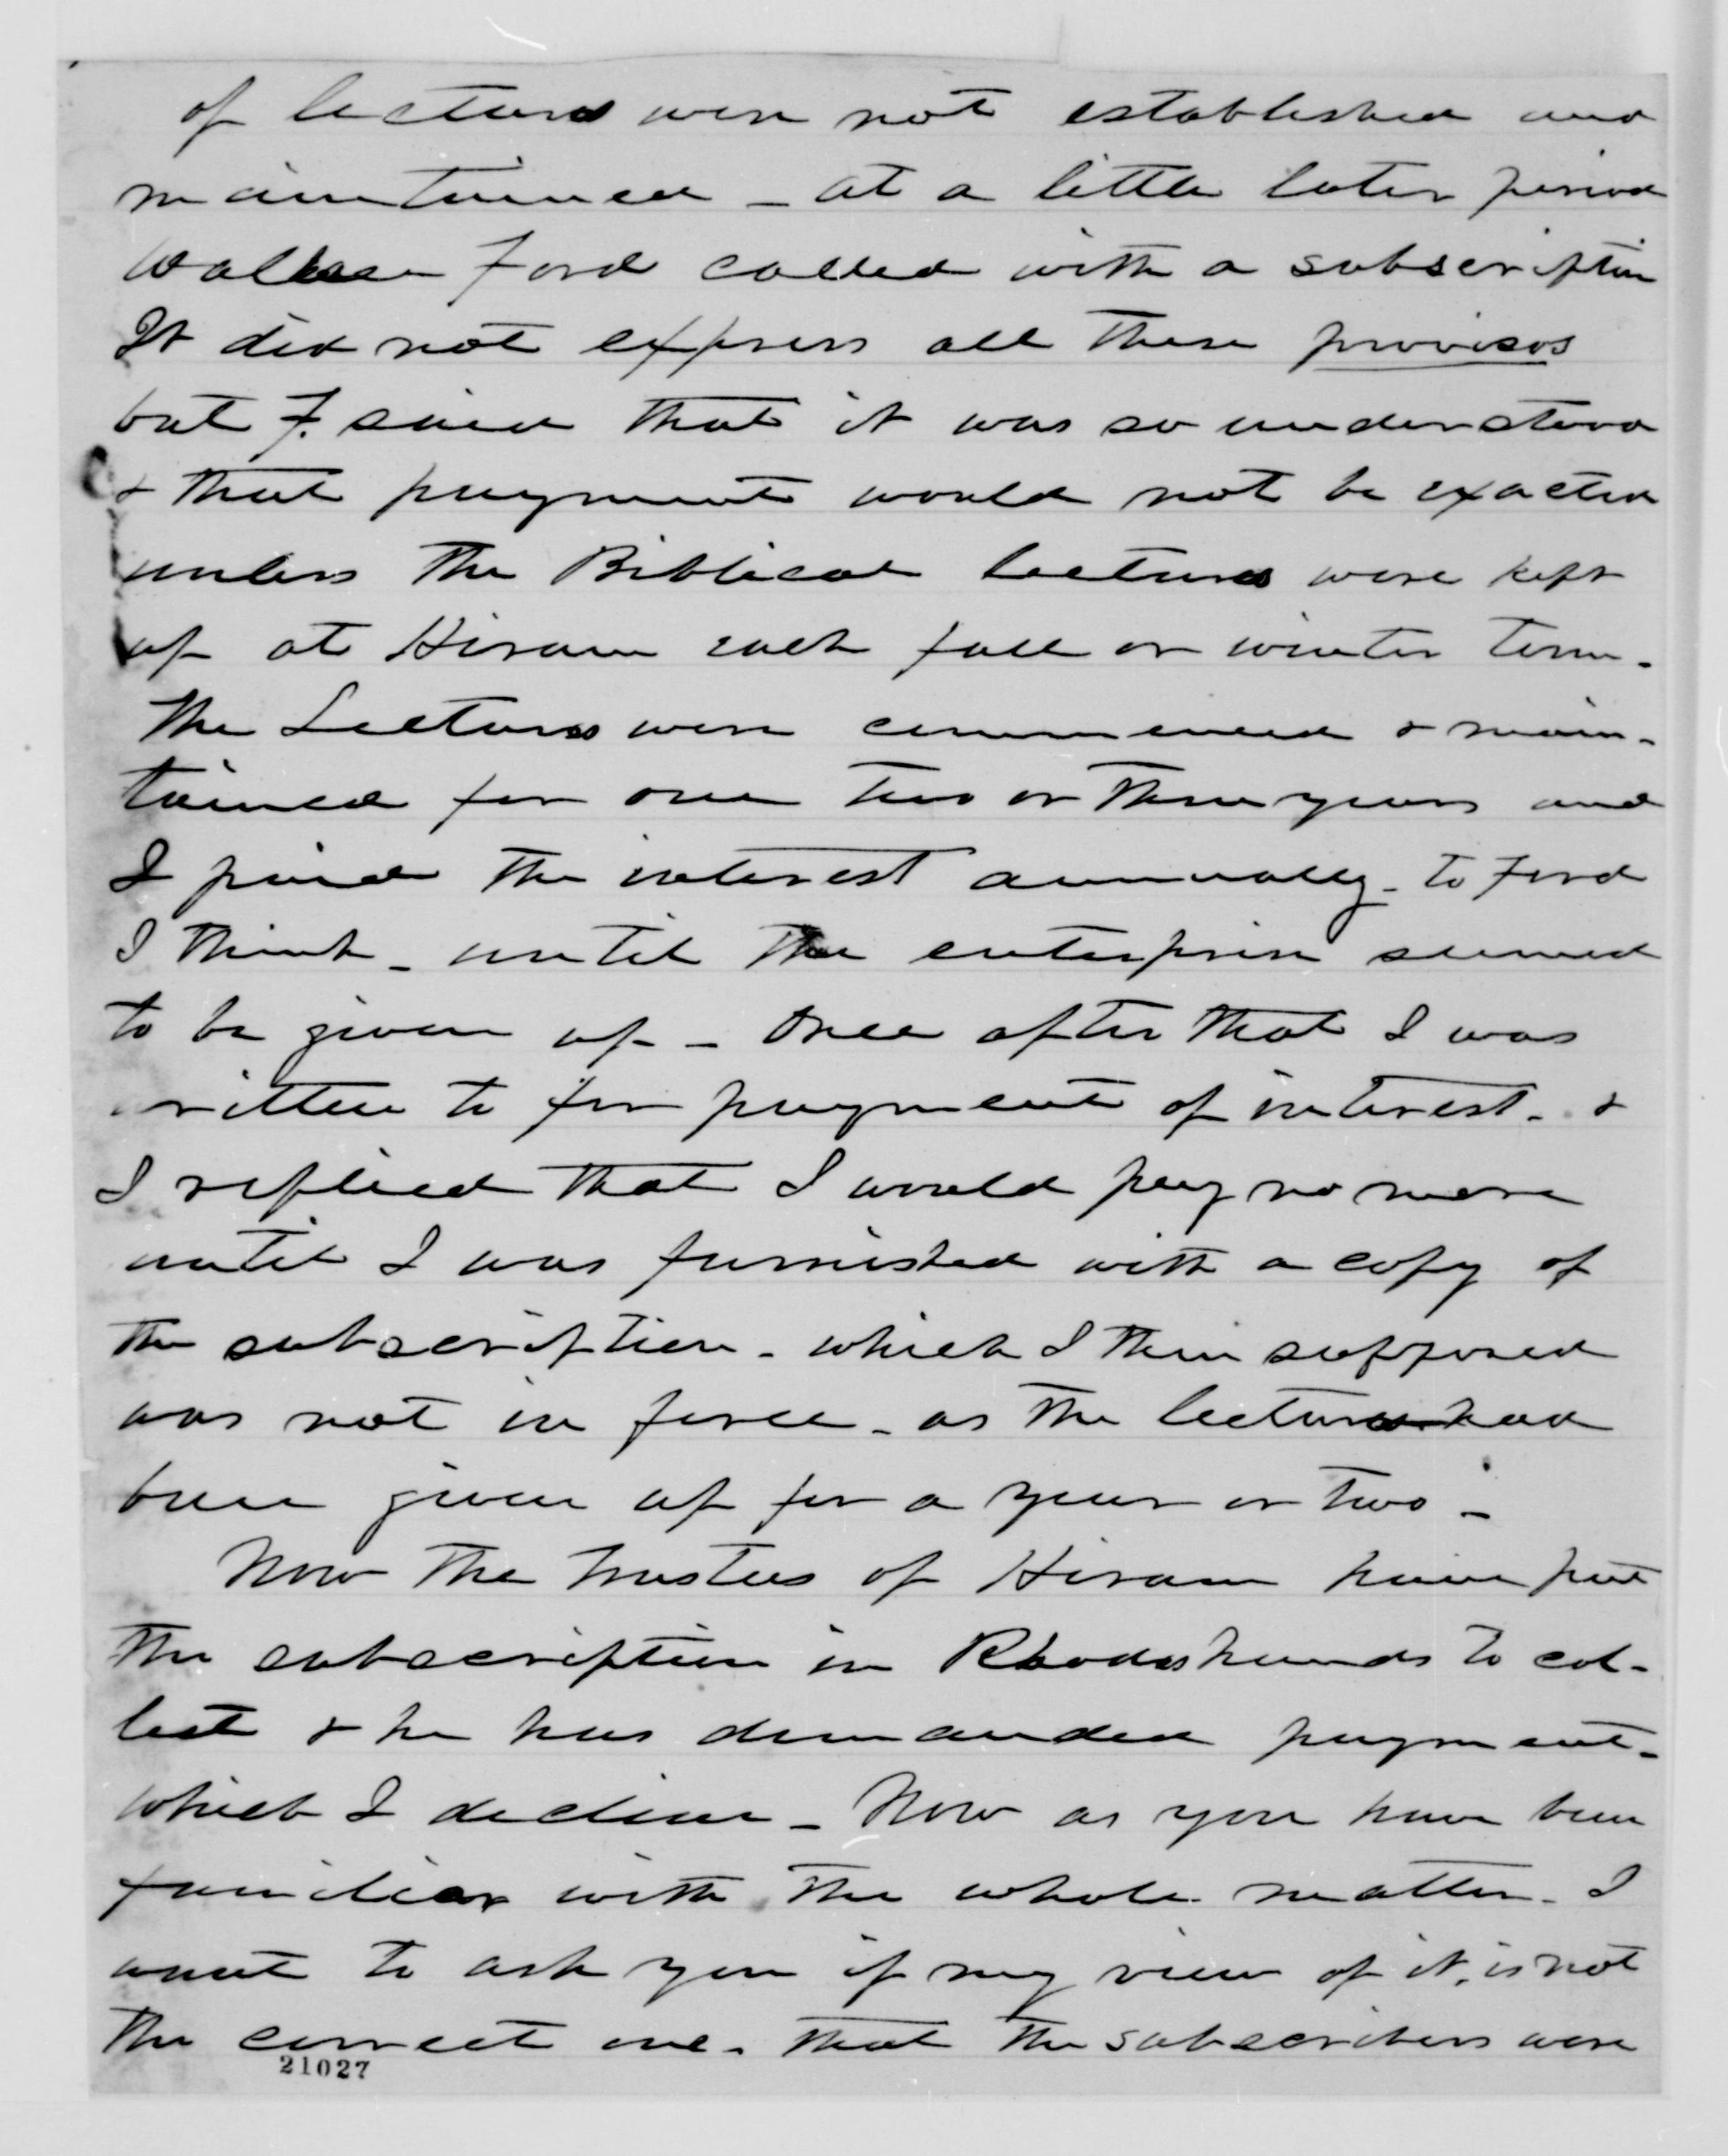 of lectures were not established and
maintained - at a little later period
Wallace Ford called with a subscription
It did not express all these provisos
but F. said that it was so understood
& that payment would not be exacted
unless the Biblical lectures were kept
up at Hiram each fall or winter term.
The Lectures were commenced & main-
tained for one two or three years and
I paid the interest annually - to Ford
I think - until the enterprise seemed
to be given up - Once after that I was
written to for payment of interest - &
I replied that I would pay no more
until I was furnished with a copy of
the subscription - which I then supposed
was not in force - as the lectures had
been given up for a year or two -
Now the trustees of Hiram have put
the subscription in Rhodes hands to col-
lect & he has demanded payment -
which I decline - Now as you have been
familiar with the whole matter - I
want to ask you if my view of it, is not
the correct one - that the subscribers were
21027